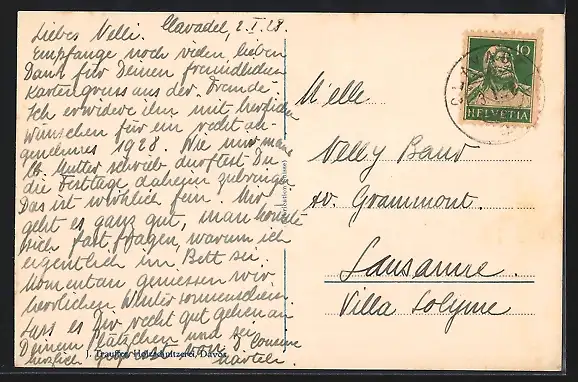 Liebes Nelli. Clavadel, 2.I.28.
Empfange noch vielen lieben
Dank für Deinen freundlichen
Kartengruss aus der Fremde.
Ich erwidere ihn mit herzlichen
Wünschen für ein recht an-
genehmes 1928. Wie mir meine
lb. Mutter schrieb durftest Du
die Festtage daheim zubringen
Das ist wirklich fein. Mir
geht es ganz gut, man könnte
mich fast fragen, warum ich
eigentlich im Bett sei.
Momentan geniessen wir
herrlichen Wintersonnenschein.
Lass es Dir recht gut gehen an
Deinem Plätzchen und sei
herzlich gegrüsst von D. Cousine
J. Trauffer, Holzschnitzerei, Davos
M'elle
Nelly
av. Grammont.
Lausanne.
Villa Solyme
10
HELVETIA